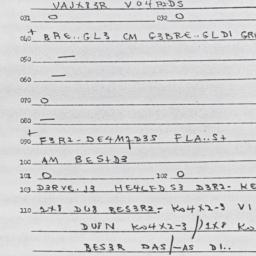 VAJX83R VO4R2DS
031 O 032 O
040 + BRE..GL3 CM G3BRE..GLD1 GR
050 —
060 —
070 O
080 —
090 + F3R2-DE4M2D3S FLA..S+
100 AM BES+D3
101 O 102 O
103 D3RVE.13 HE4LFD S3 D3R2- HE
110 1X8 DU8 RES3R2- K04X2-3 VI
DU8N K04X2-3//1X8 KO
BES3R DAS/-AS DI..